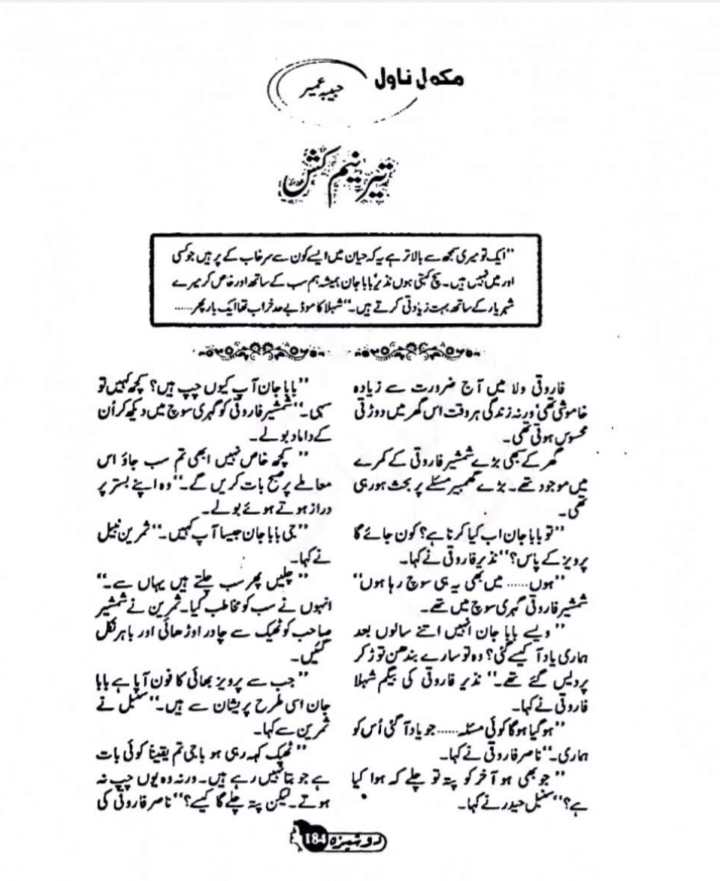 مکمل ناول
حبیبہ عمیر
تیر نیم کش
’’ایک تو میری سمجھ سے بالاتر ہے یہ کہ حیان میں ایسے کون سے سرخاب کے پر ہیں جو کسی
اور میں نہیں ہیں۔ سچ کہتی ہوں نذیر بابا جان ہمیشہ ہم سب کے ساتھ اور خاص کر میرے
شہریار کے ساتھ بہت زیادتی کرتے ہیں۔‘‘ شہلا کا موڈ بے حد خراب تھا ایک بار پھر......
فاروقی ولا میں آج ضرورت سے زیادہ
خاموشی تھی ورنہ زندگی ہر وقت اس گھر میں دوڑتی
محسوس ہوتی تھی۔
گھر کے سبھی بڑے شمشیر فاروقی کے کمرے
میں موجود تھے۔ بڑے گھمبیر مسئلے پر بحث ہو رہی
تھی۔
’’تو بابا جان اب کیا کرنا ہے؟ کون جائے گا
پرویز کے پاس؟‘‘ نذیر فاروقی نے کہا۔
’’ہوں...... میں بھی یہ ہی سوچ رہا ہوں‘‘
شمشیر فاروقی گہری سوچ میں تھے۔
’’ویسے بابا جان انہیں اتنے سالوں بعد
ہماری یاد آ کیسے گئی؟ وہ تو سارے بندھن توڑ کر
پردیس گئے تھے۔‘‘ نذیر فاروقی کی بیگم شہلا
فاروقی نے کہا۔
’’ہو گیا ہوگا کوئی مسئلہ...... جو یاد آ گئی اُس کو
ہماری۔‘‘ ناصر فاروقی نے کہا۔
’’جو بھی ہو آخر کو پتہ تو چلے کہ ہوا کیا
ہے؟‘‘ سنبل حیدر نے کہا۔
’’بابا جان آپ کیوں چپ ہیں؟ کچھ کہیں تو
سہی۔‘‘ شمشیر فاروقی کو گہری سوچ میں دیکھ کر اُن
کے داماد بولے۔
’’کچھ خاص نہیں ابھی تم سب جاؤ اس
معاملے پر صبح بات کریں گے۔‘‘ وہ اپنے بستر پر
دراز ہوتے ہوئے بولے۔
’’جی بابا جان جیسا آپ کہیں۔‘‘ ثمرین نبیل
نے کہا۔
’’چلیں پھر سب چلتے ہیں یہاں سے۔‘‘
انہوں نے سب کو مخاطب کیا۔ ثمرین نے شمشیر
صاحب کو ٹھیک سے چادر اوڑھائی اور باہر نکل
گئیں۔
’’جب سے پرویز بھائی کا فون آیا ہے بابا
جان اسی طرح پریشان سے ہیں۔‘‘ سنبل نے
ثمرین سے کہا۔
’’ٹھیک کہہ رہی ہو باجی تم یقیناً کوئی بات
ہے جو بتا نہیں رہے ہیں۔ ورنہ وہ یوں چپ نہ
ہوتے۔ لیکن پتہ چلے گا کیسے؟‘‘ ناصر فاروقی کی
دوشیزہ 184